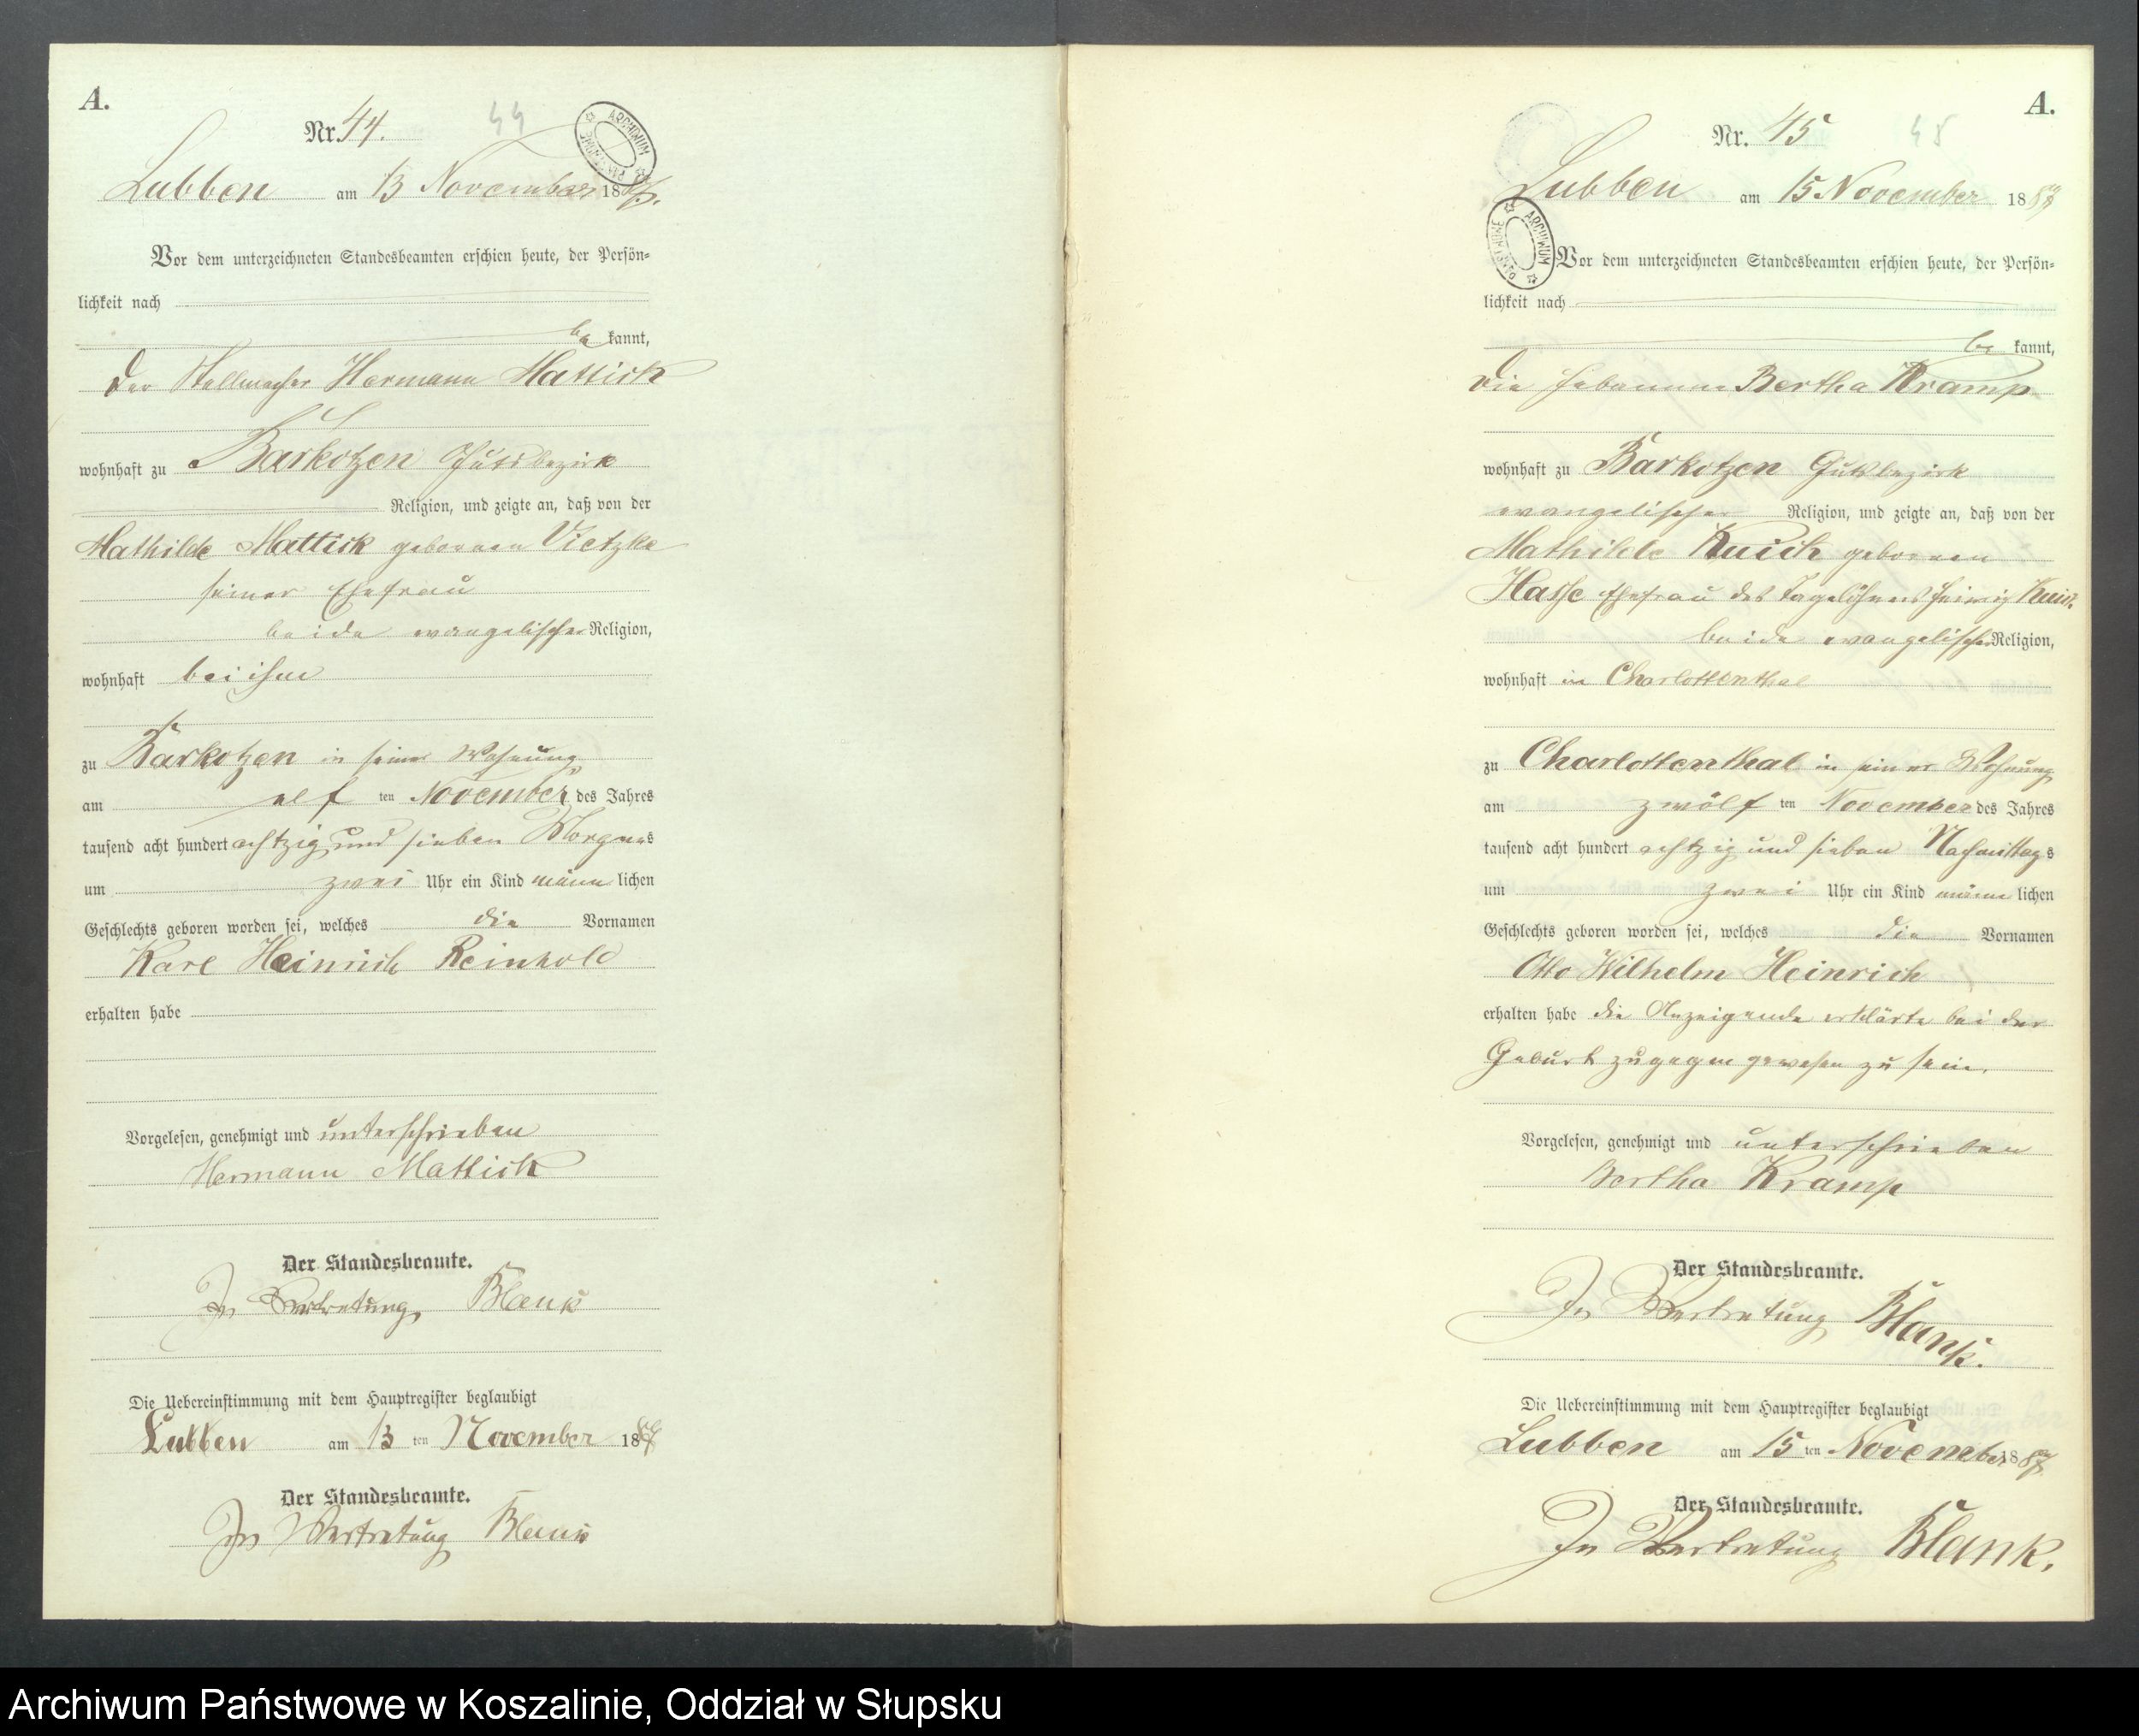 A.
Nr. 44.
44
ARCHIWUM
Lubben am 13 November 1887.
Vor dem unterzeichneten Standesbeamten erschien heute, der Persön-
lichkeit nach
be kannt,
der Stellmacher Hermann Mattick
wohnhaft zu Barkotzen Gutsbezirk
Religion, und zeigte an, daß von der
Mathilde Mattick geborenen Vietzke
seiner Ehefrau
beide evangelischer Religion,
wohnhaft bei ihm
zu Barkotzen in seiner Wohnung
am elf ten November des Jahres
tausend acht hundert achtzig und sieben Morgens
um zwei Uhr ein Kind männlichen
Geschlechts geboren worden sei, welches die Vornamen
Karl Heinrich Reinhold
erhalten habe
Vorgelesen, genehmigt und unterschrieben
Hermann Mattick
Der Standesbeamte.
In Vertretung Blank
Die Uebereinstimmung mit dem Hauptregister beglaubigt
Lubben am 13 ten November 1887
Der Standesbeamte.
In Vertretung Blank
A.
Nr. 45
45
Lubben am 15 November 1887
ARCHIWUM
Vor dem unterzeichneten Standesbeamten erschien heute, der Persön-
lichkeit nach
be kannt,
die Hebamme Bertha Kramp
wohnhaft zu Barkotzen Gutsbezirk
evangelischer Religion, und zeigte an, daß von der
Mathilde Kuich geborenen
Hasse Ehefrau des Tagelöhners Heinrich Kuich
beide evangelischer Religion,
wohnhaft in Charlottenthal
zu Charlottenthal in seiner Wohnung
am zwölf ten November des Jahres
tausend acht hundert achtzig und sieben Nachmittags
um zwei Uhr ein Kind männlichen
Geschlechts geboren worden sei, welches die Vornamen
Otto Wilhelm Heinrich
erhalten habe die Anzeigende erklärte bei der
Geburt zugegen gewesen zu sein.
Vorgelesen, genehmigt und unterschrieben
Bertha Kramp
Der Standesbeamte.
In Vertretung Blank.
Die Uebereinstimmung mit dem Hauptregister beglaubigt
Lubben am 15 ten November 1887
Der Standesbeamte.
In Vertretung Blank.
Archiwum Państwowe w Koszalinie, Oddział w Słupsku